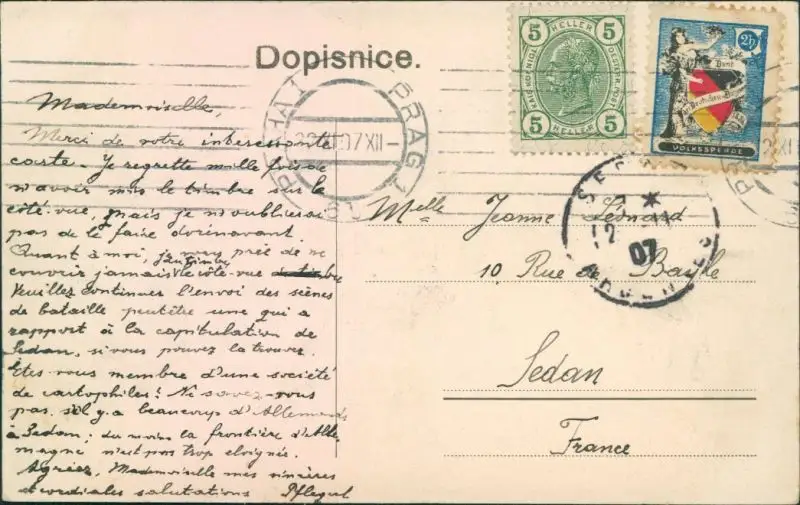 Dopisnice.
5 HELLER 5
5 HELLER 5
2h
Bund
VOLKSSPENDE
PRAHA 1 PRAG 1
07 XII
07
Mademoiselle,
Merci de votre interessante
carte. Je regrette mille fois de
n'avoir mis le timbre sur le
côté-vue, mais je n'oublierai
pas de le faire dorénavant
Quant à moi, je vous prie de ne
couvrir jamais le côté-vue du timbre
Veuillez continuer l'envoi des scènes
de bataille peutêtre une qui a
rapport à la capitulation de
Sedan, si vous pouvez la trouver.
Etes-vous membre d'une société
de cartophiles? Ne savez-vous
pas s'il y a beaucoup d'Allemands
à Sedan; du moins la frontière d'Alle
magne n'est pas trop eloignée.
Agréez, Mademoiselle mes sincères
et cordiales salutations
Melle Jeanne Léonard
10 Rue de Bayle
Sedan
France